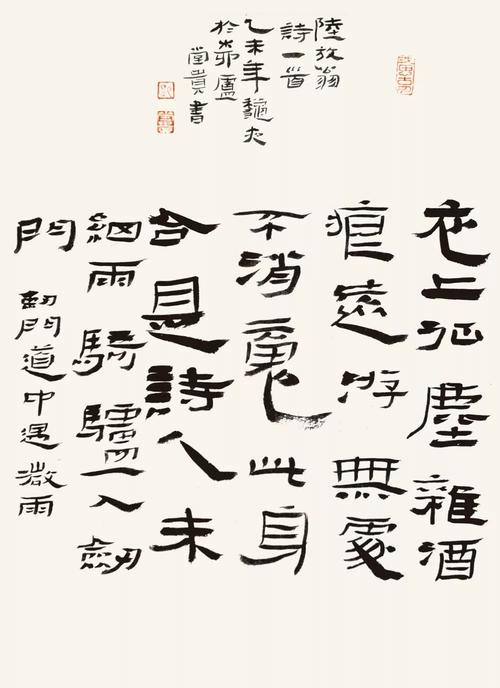 衣上征塵雜酒
痕遠游無處
不消魂此身
合是詩人未
細雨騎驢入劒
門 劒門道中遇微雨
陸放翁
詩一首
乙未年
於茆廬
堂貴書